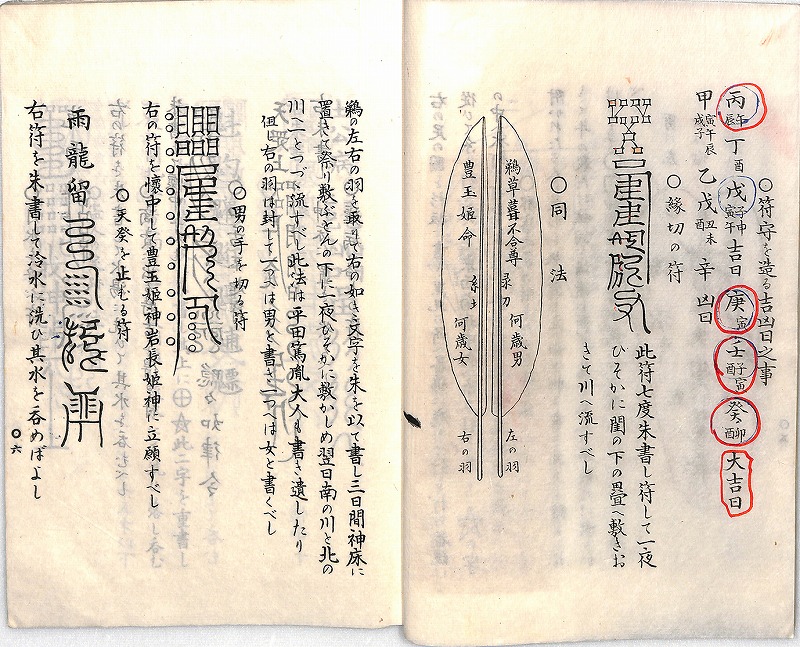 ○符守を造る吉凶日之事
丙午辰 丁酉 戊子申寅午 吉日 庚寅 壬子酉寅 癸卯酉 大吉日
甲寅午辰戌子 乙 戊丑未酉 辛 凶日
○縁切の符
此符七度朱書し符して一夜
ひそかに閨の下の畳へ敷きお
きて川へ流すべし
○同法
鵜草葺不合尊 何歳男
左の羽
豊玉姫命 何歳女
右の羽
鵜の左右の羽を取りて右の如き文字を朱を以て書し三日間神床に
置きて祭り敷ぶとんの下に一夜ひそかに敷かしめ翌日南の川と北の
川に一つづゝ流すべし此法は平田篤胤大人も書き遺したり
但し右の羽は封して一つへは男と書き一つへは女と書くべし
○男の手を切る符
右の符を懐中して豊玉姫神岩長姫神に立願すべし
○天癸を止むる符
雨龍留
右符を朱書して冷水に洗ひ其水を呑めばよし
○六